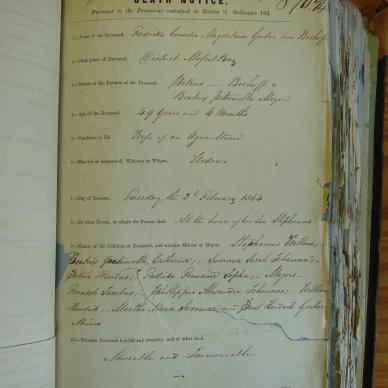 DEATH NOTICE.
Pursuant to the Provisions contained in Section 9, Ordinance 104.
1.—Name of the Deceased. Fredrika Cornelia Magdalena
2.—Birth-place of Deceased. District Mossel Bay
3.—Names of the Parents of the Deceased. Petrus
Beatrix Petronella Meyer
4.—Age of the Deceased. 49 Years and 4 Months
5.—Condition in life. Wife of an Agriculturist
6.—Married or unmarried, Widower or Widow. Widow
7.—Day of Decease. Tuesday the 2d February 1864
8.—At what House, or where the Person died. At the house of her Son Stephanus
9.—Names of the Children of Deceased, and whether Minors or Majors. Stephanus Willem,
Catherina; Susanna Sarah Johanna;
Petrus; Fredrika Francina Sophia; Majors
Francois Jacobus; Phillippus Alexander Johannes; Willem
Hendrik; Martha Maria Susanna; and Paul Hendrik
Minors
10.—Whether Deceased has left any property, and of what kind.
Moveable and Immoveable